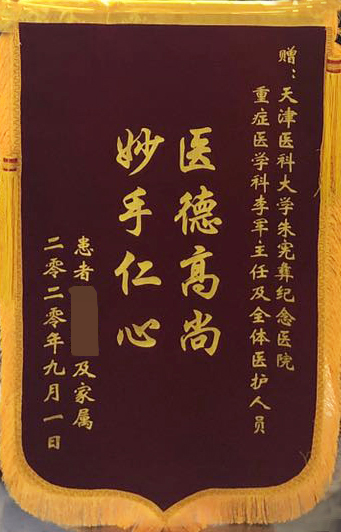 赠：天津医科大学朱宪彝纪念医院
重症医学科李军主任及全体医护人员
医德高尚
妙手仁心
患者 及家属
二零二零年九月一日